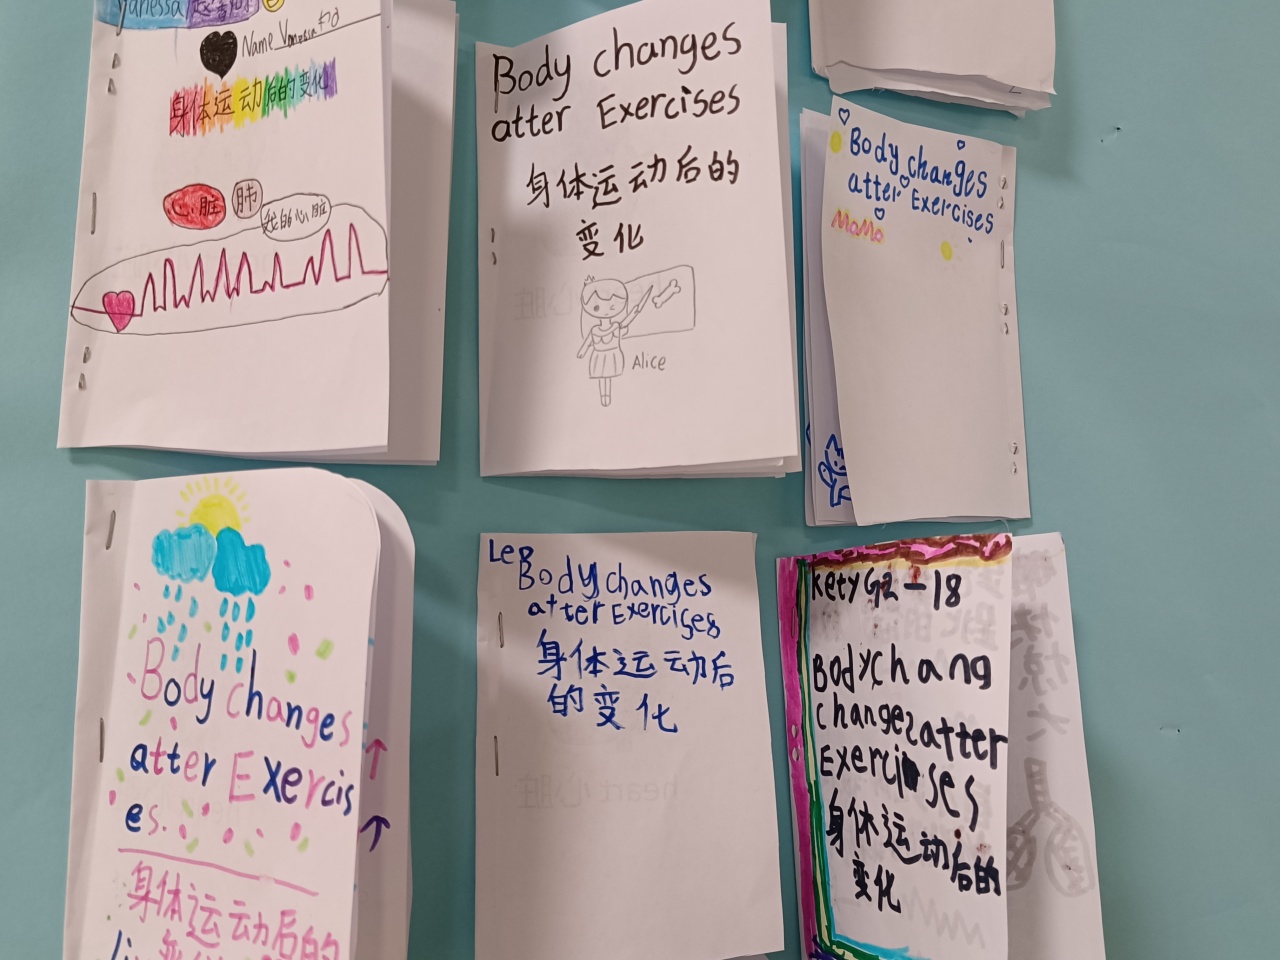 Vanessa
Name Vanessa
身体运动后的变化
心脏
肺
我的心脏
Body changes
atter Exercises
身体运动后的
变化
Alice
Body changes
atter Exercises
MoMo
Body changes
atter Exercis
es.
身体运动后的
Le
Body changes
atter Exercises
身体运动后
的变化
heart 心脏
kety G2-18
Body chang
changes atter
Exercises
身体运动后的
变化